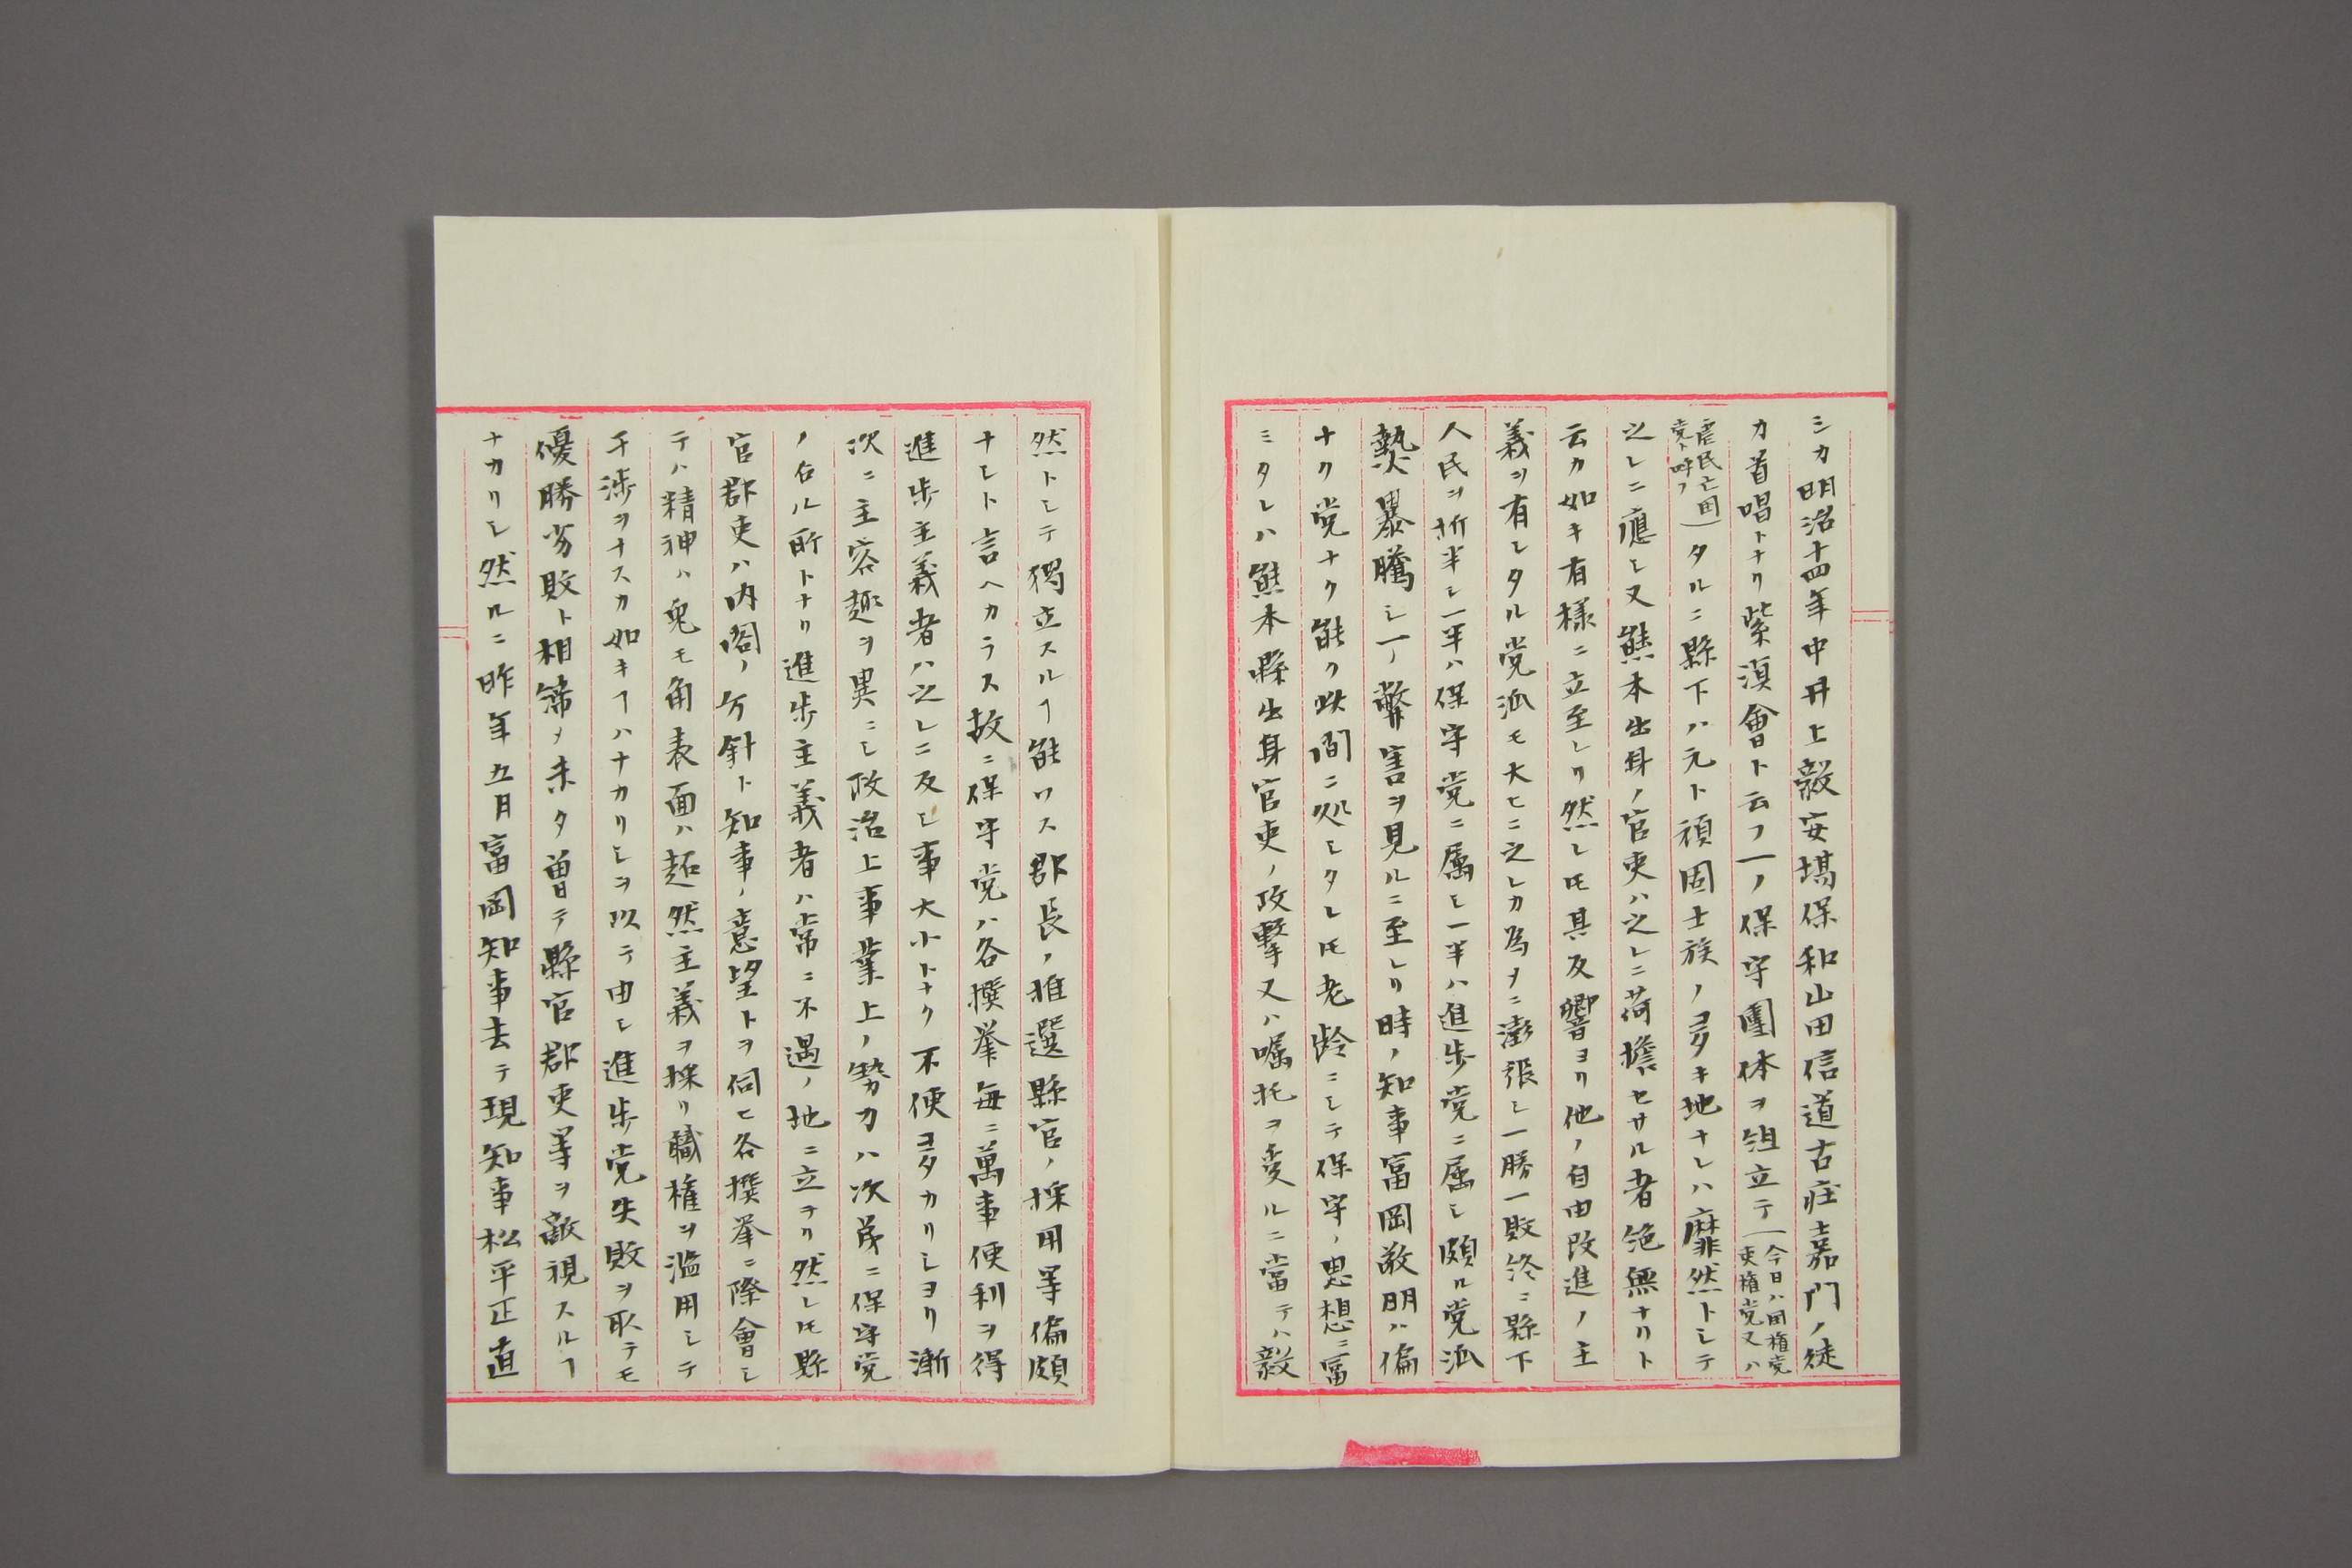 シカ明治十四年中井上毅安塲保和山田信道古荘嘉門ノ徒
カ首唱トナリ紫溟會ト云フ一ノ保守團体ヲ組立テ(今日ハ国権党
吏権党又ハ
虐民亡国
党ト呼フ)タルニ縣下ハ元ト頑固士族ノ多キ地ナレハ靡然トシテ
之レニ應シ又熊本出身ノ官吏ハ之レニ荷擔セサル者絶無ナリト
云カ如キ有様ニ立至レリ然レ𪜈其反響ヨリ他ノ自由改進ノ主
義ヲ有シタル党派モ大ヒニ之レカ為メニ澎張シ一勝一敗終ニ縣下
人民ヲ折半シ一半ハ保守党ニ属シ一半ハ進歩党ニ属シ頗ル党派
熱暴騰シ一ノ弊害ヲ見ルニ至レリ時ノ知事富岡敬明ハ偏
ナク党ナク能ク此間ニ処シタレ𪜈老齢ニシテ保守ノ思想ニ富
ミタレハ熊本縣出身官吏ノ攻撃又ハ嘱托ヲ受ルニ當テハ毅
然トシテ獨立スルヿ能ワス郡長ノ推選縣官ノ採用等偏頗
ナシト言ヘカラス故ニ保守党ハ各撰挙毎ニ萬事便利ヲ得
進歩主義者ハ之レニ反シ事大小トナク不便多カリシヨリ漸
次ニ主客趣ヲ異ニシ政治上事業上ノ勢力ハ次第ニ保守党
ノ占ル所トナリ進歩主義者ハ常ニ不遇ノ地ニ立テリ然レ𪜈縣
官郡吏ハ内閣ノ方針ト知事ノ意望トヲ伺ヒ各撰挙ニ際會シ
テハ精神ハ兎モ角表面ハ超然主義ヲ採リ職権ヲ濫用シテ
干渉ヲナスカ如キヿハナカリシヲ以テ由シ進歩党失敗ヲ取テモ
優勝劣敗ト相諦メ未タ曽テ縣官郡吏等ヲ敵視スルヿ
ナカリシ然ルニ昨年五月富岡知事去テ現知事松平正直